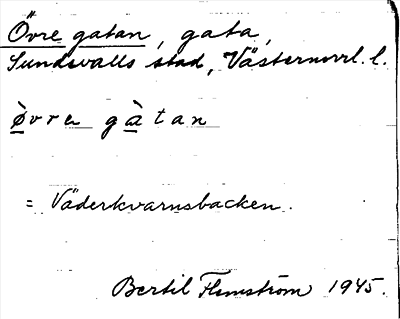 Övre gatan, gata,
Sundsvalls stad, Västernorrl. l.
ö̀vre gàtan
= Väderkvarnsbacken.
Bertil Flemström 1945.